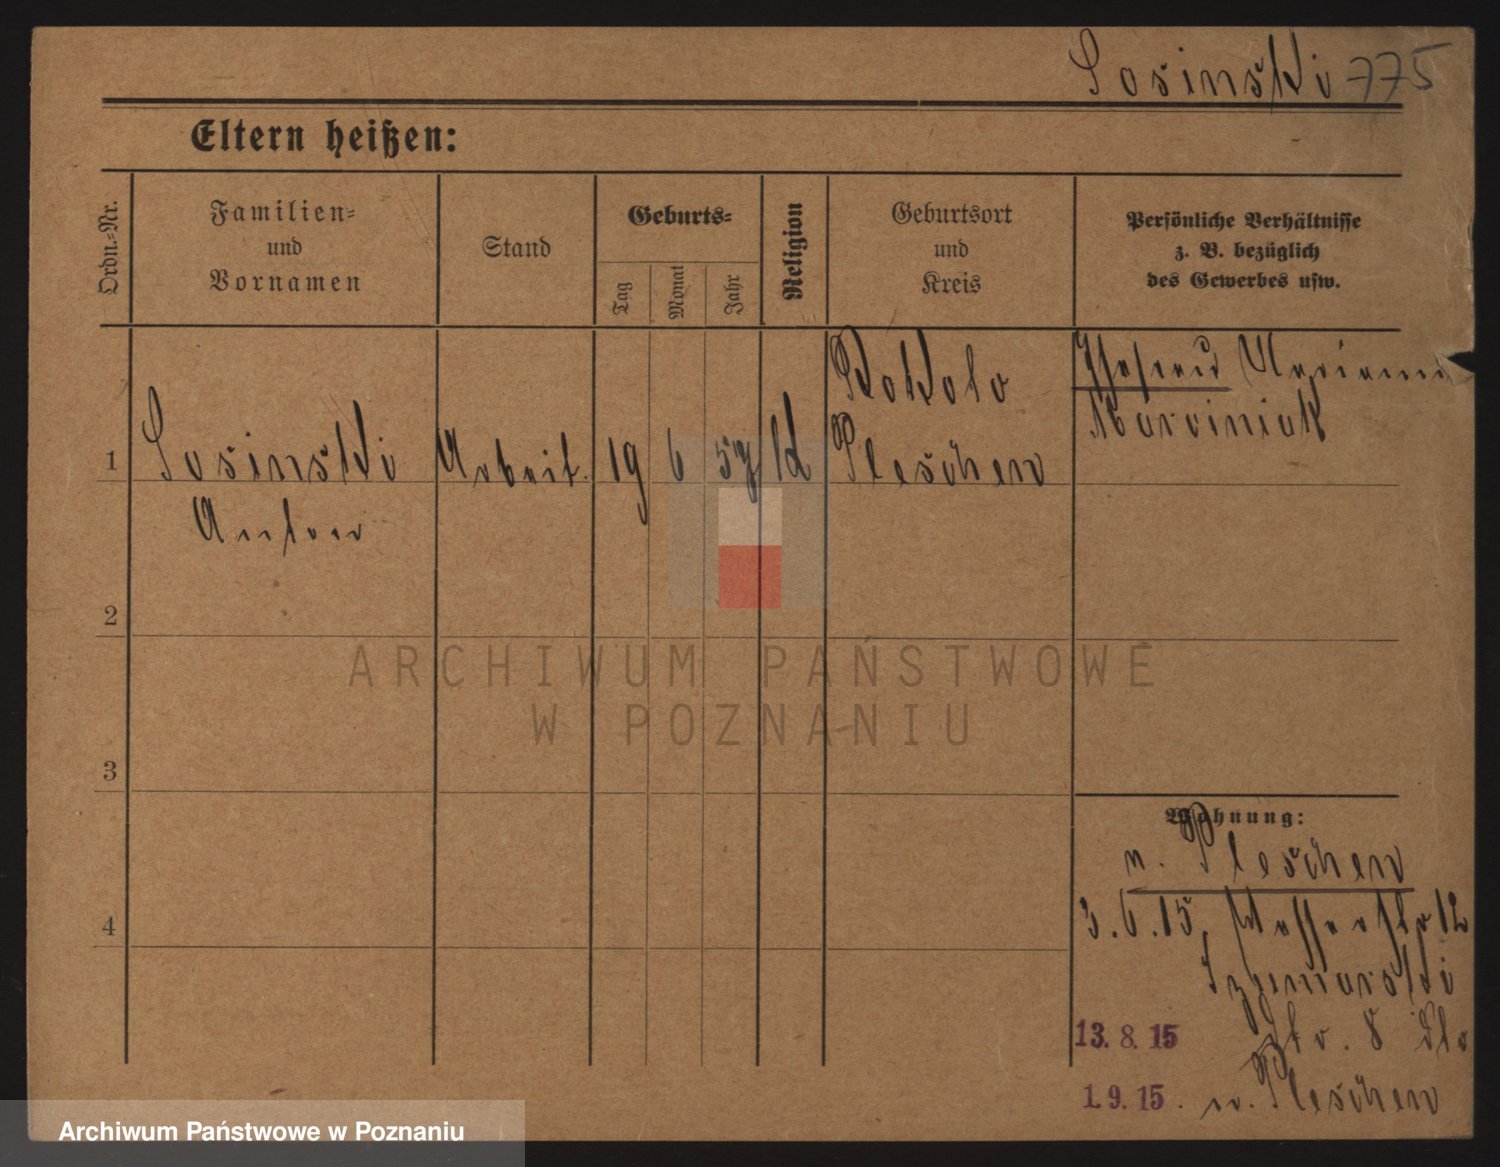 Sosinski 775
Eltern heißen:
Ordn.-Nr.
Familien-
und
Vornamen
Stand
Geburts-
Tag
Monat
Jahr
Religion
Geburtsort
und
Kreis
Persönliche Verhältnisse
z. B. bezüglich
des Gewerbes usw.
1
Sosinski
Anton
Arbeit.
19
6
57
kd
Pleschen
Ehefrau
Marciniak
2
3
4
Wohnung:
n. Pleschen
3.6.15.
12
13.8.15
8
1.9.15. n. Pleschen
ARCHIWUM PAŃSTWOWE
W POZNANIU
Archiwum Państwowe w Poznaniu